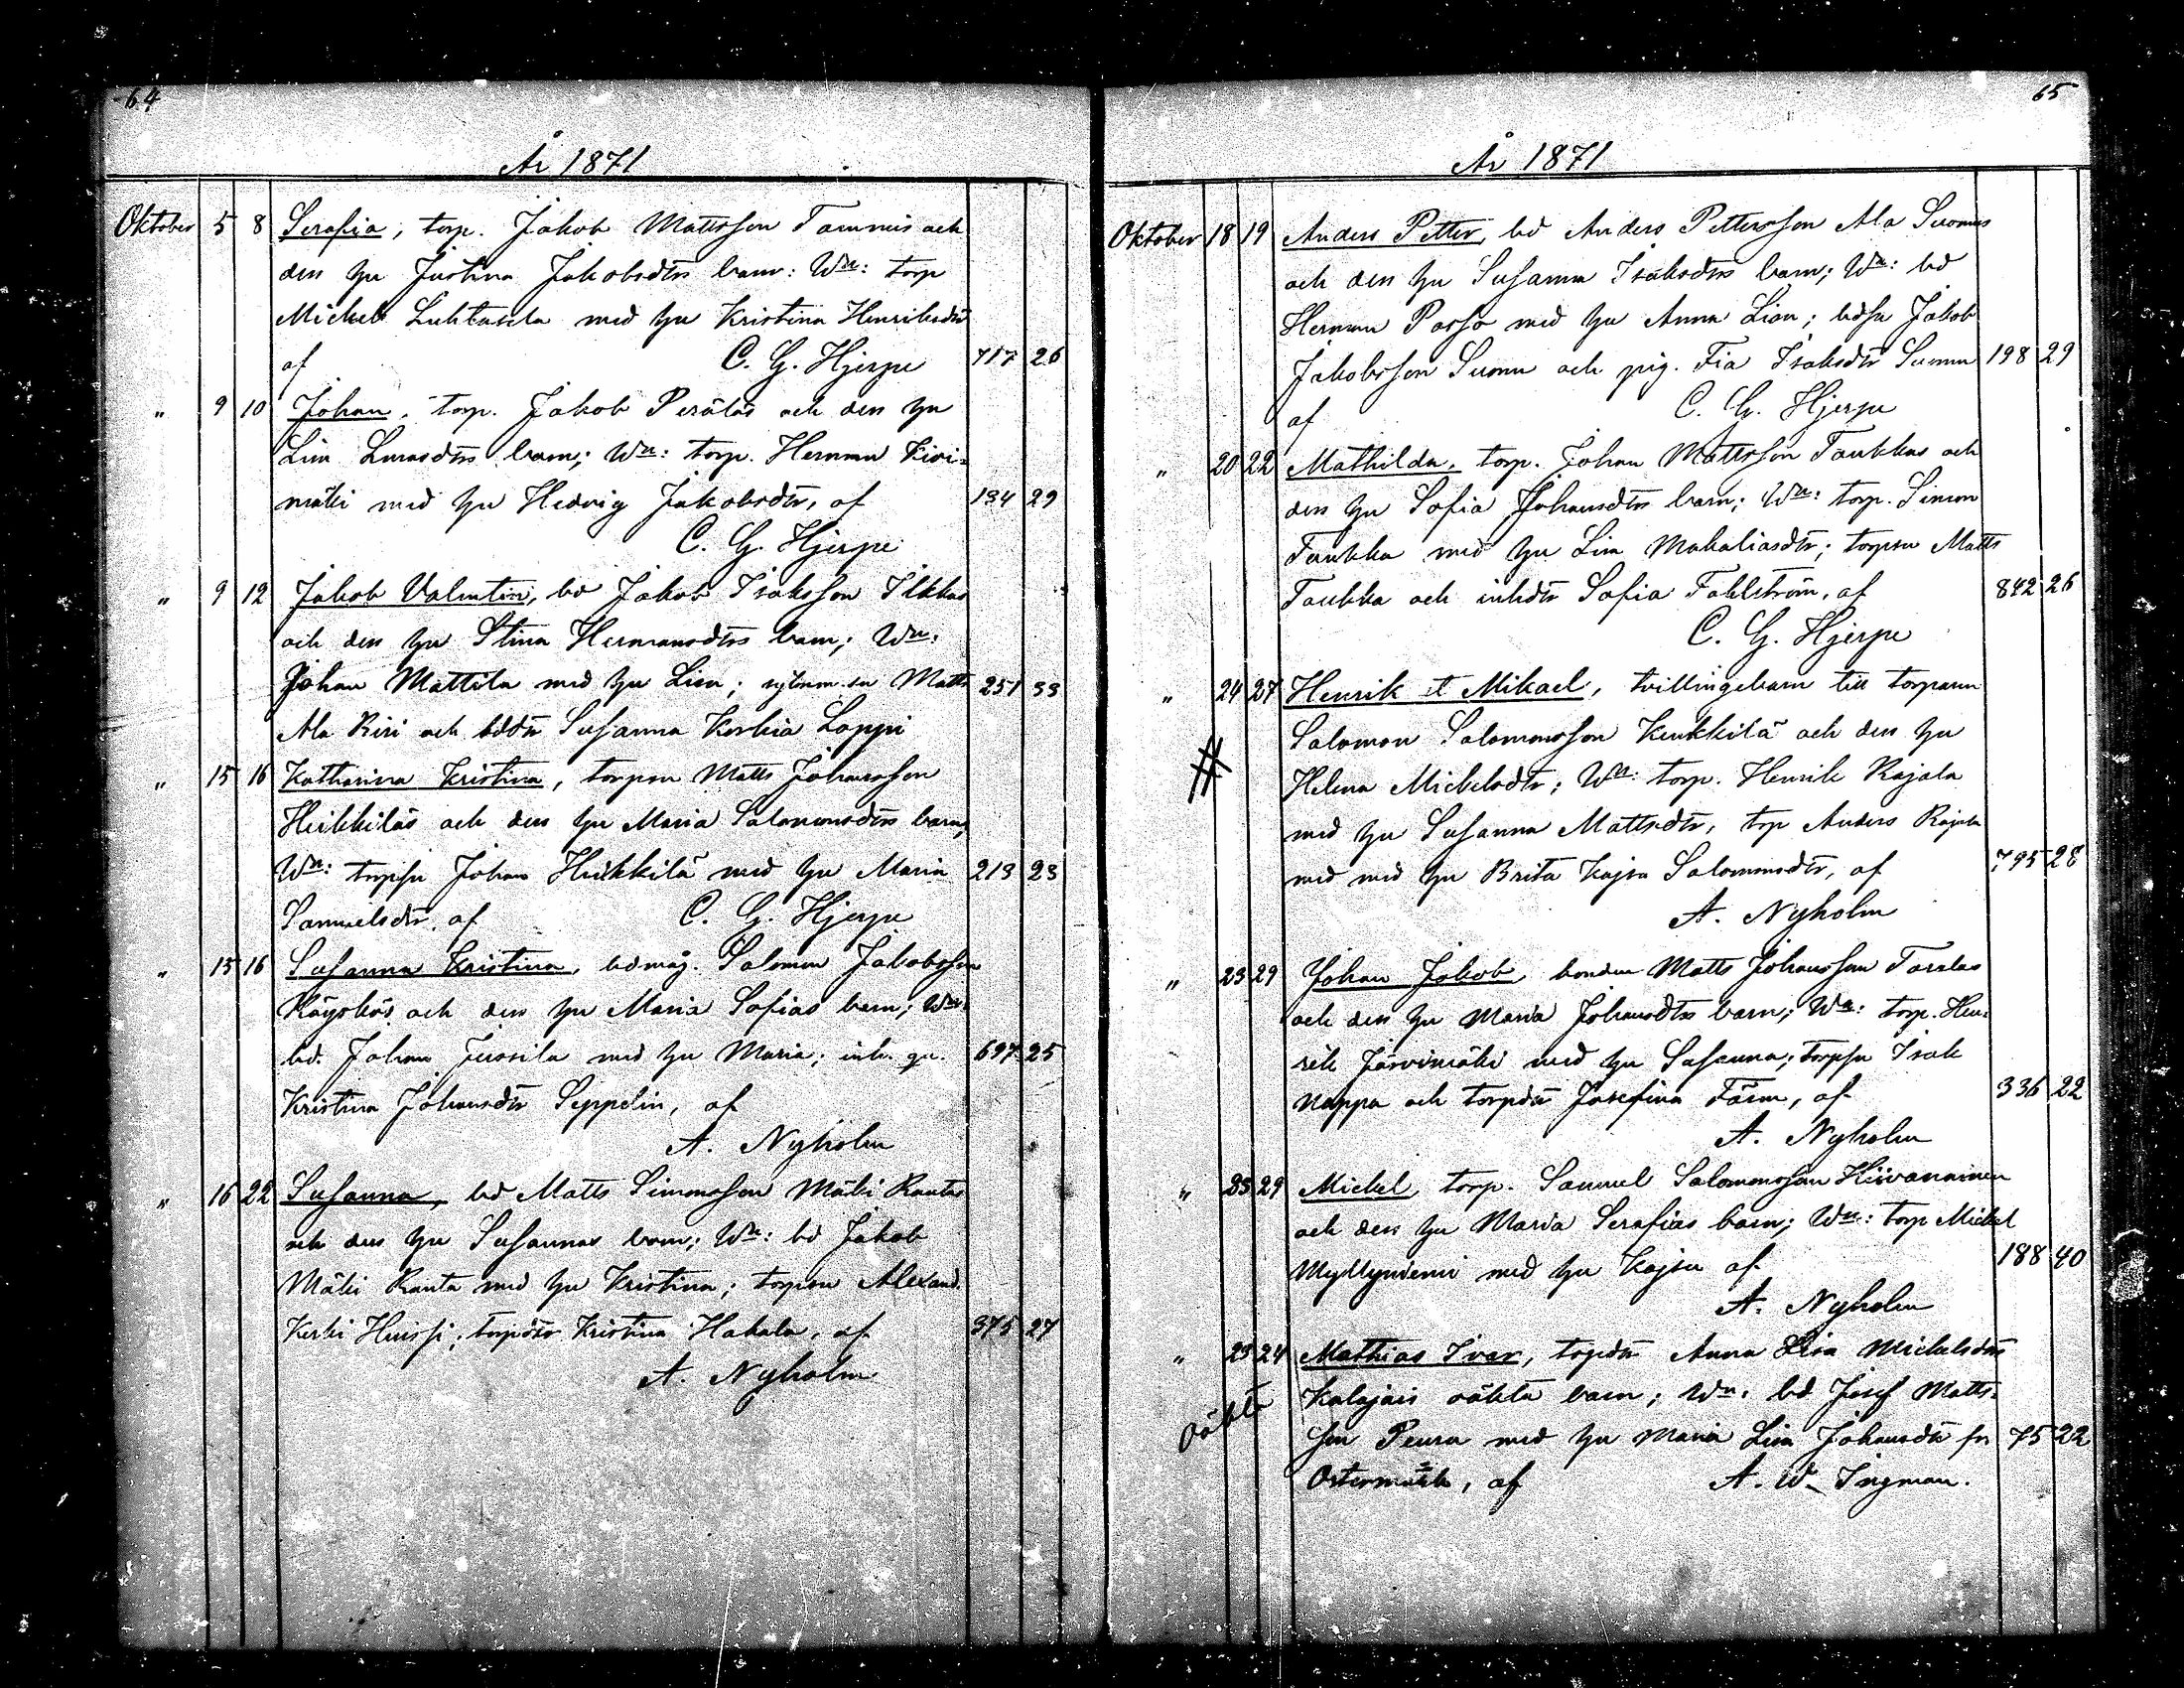 64
År 1871
Oktober 5 8 Serafia, torp. Jakob Mattsson Tammis och
den hu Justina Jakobsdtrs barn: Wn: torp
Mickel Luhtasela med hu Kristina Henriksdtr
af C. G. Hjerpe 717 26
" 9 10 Johan, torp. Jakob Peräläs och den hu
Lisa Lucasdtrs barn; Wn: torp. Herman Kivi=
mäki med hu Hedvig Jakobsdtr, af 134 29
C. G. Hjerpe
" 9 12 Jakob Valentin, bd Jakob Isaksson Ilkkas
och den hu Stina Hermansdtrs barn; Wn:
Johan Mattila med hu Lisa; Matts 251 33
Ala Riri och bddtr Susanna Korkia Lappi
" 15 16 Katharina Kristina, torpson Matts Johansson
Heikkiläs och den hu Maria Salomonsdtrs barn;
Wn: torpsn Johan Heikkilä med hu Maria 213 23
Samuelsdtr, af C. G. Hjerpe
" 15 16 Susanna Kristina, bdmåg. Salomon Jakobsson
Käyskös och den hu Maria Sofias barn; Wn:
bd. Johan Jussila med hu Maria; inh. qv. 697 25
Kristina Johansdtr Seppelin, af
A. Nyholm
" 16 22 Susanna, bd Matts Simonsson Mäki Rantas
och den hu Susannas barn; Wn: bd Jakob
Mäki Ranta med hu Kristina; torpson Alexand.
Keski Huissi; torpdtr Kristina Hakala, af 375 27
A. Nyholm
65
År 1871
Oktober 18 19 Anders Petter, bd Anders Pettersson Ala Suomus
och den hu Susanna Isaksdtrs barn; Wn: bd
Herman Passo med hu Anna Lisa; bdsn Jakob
Jakobsson Suomu och pig. Fia Isaksdtr Suomu 198 29
af C. G. Hjerpe
" 20 22 Mathilda, torp. Johan Mattsson Taukkas och
den hu Sofia Johansdtrs barn; Wn: torp. Simon
Taukka med hu Lisa Makaliasdtr; torpson Matts
Taukka och inhdtr Sofia Fahlström, af 842 26
C. G. Hjerpe
" 24 27 Henrik et Mikael, tvillingebarn till torparen
Salomon Salomonsson Keukkilä och den hu
# Helena Mickelsdtr; Wn: torp. Henrik Rajala
med hu Susanna Mattsdtr, torp Anders Rajala
med med hu Brita Kajsa Salomonsdtr, af 795 28
A. Nyholm
" 23 29 Johan Jakob, bonden Matts Johansson Taralas
och den hu Maria Johansdtrs barn; Wn: torp. Hen=
rik Järvimäki med hu Susanna; torpsn Isak
Nappa och torpdtr Josefina Färm, af 336 22
A. Nyholm
" 23 29 Mickel, torp. Samuel Salomonsson Hiivanainen
och den hu Maria Serafias barn; Wn: torp Mickel
Myllyniemi med hu Kajsa af 188 40
A. Nyholm
" 23 24 Mathias Ivar, torpdtr Anna Lisa Mickelsdtrs
oäkta Kalajais oäkta barn; Wn: bd Josef Matts=
son Peura med hu Maria Lisa Johansdtr fr 75 22
Östermark, af A. W. Ingman.